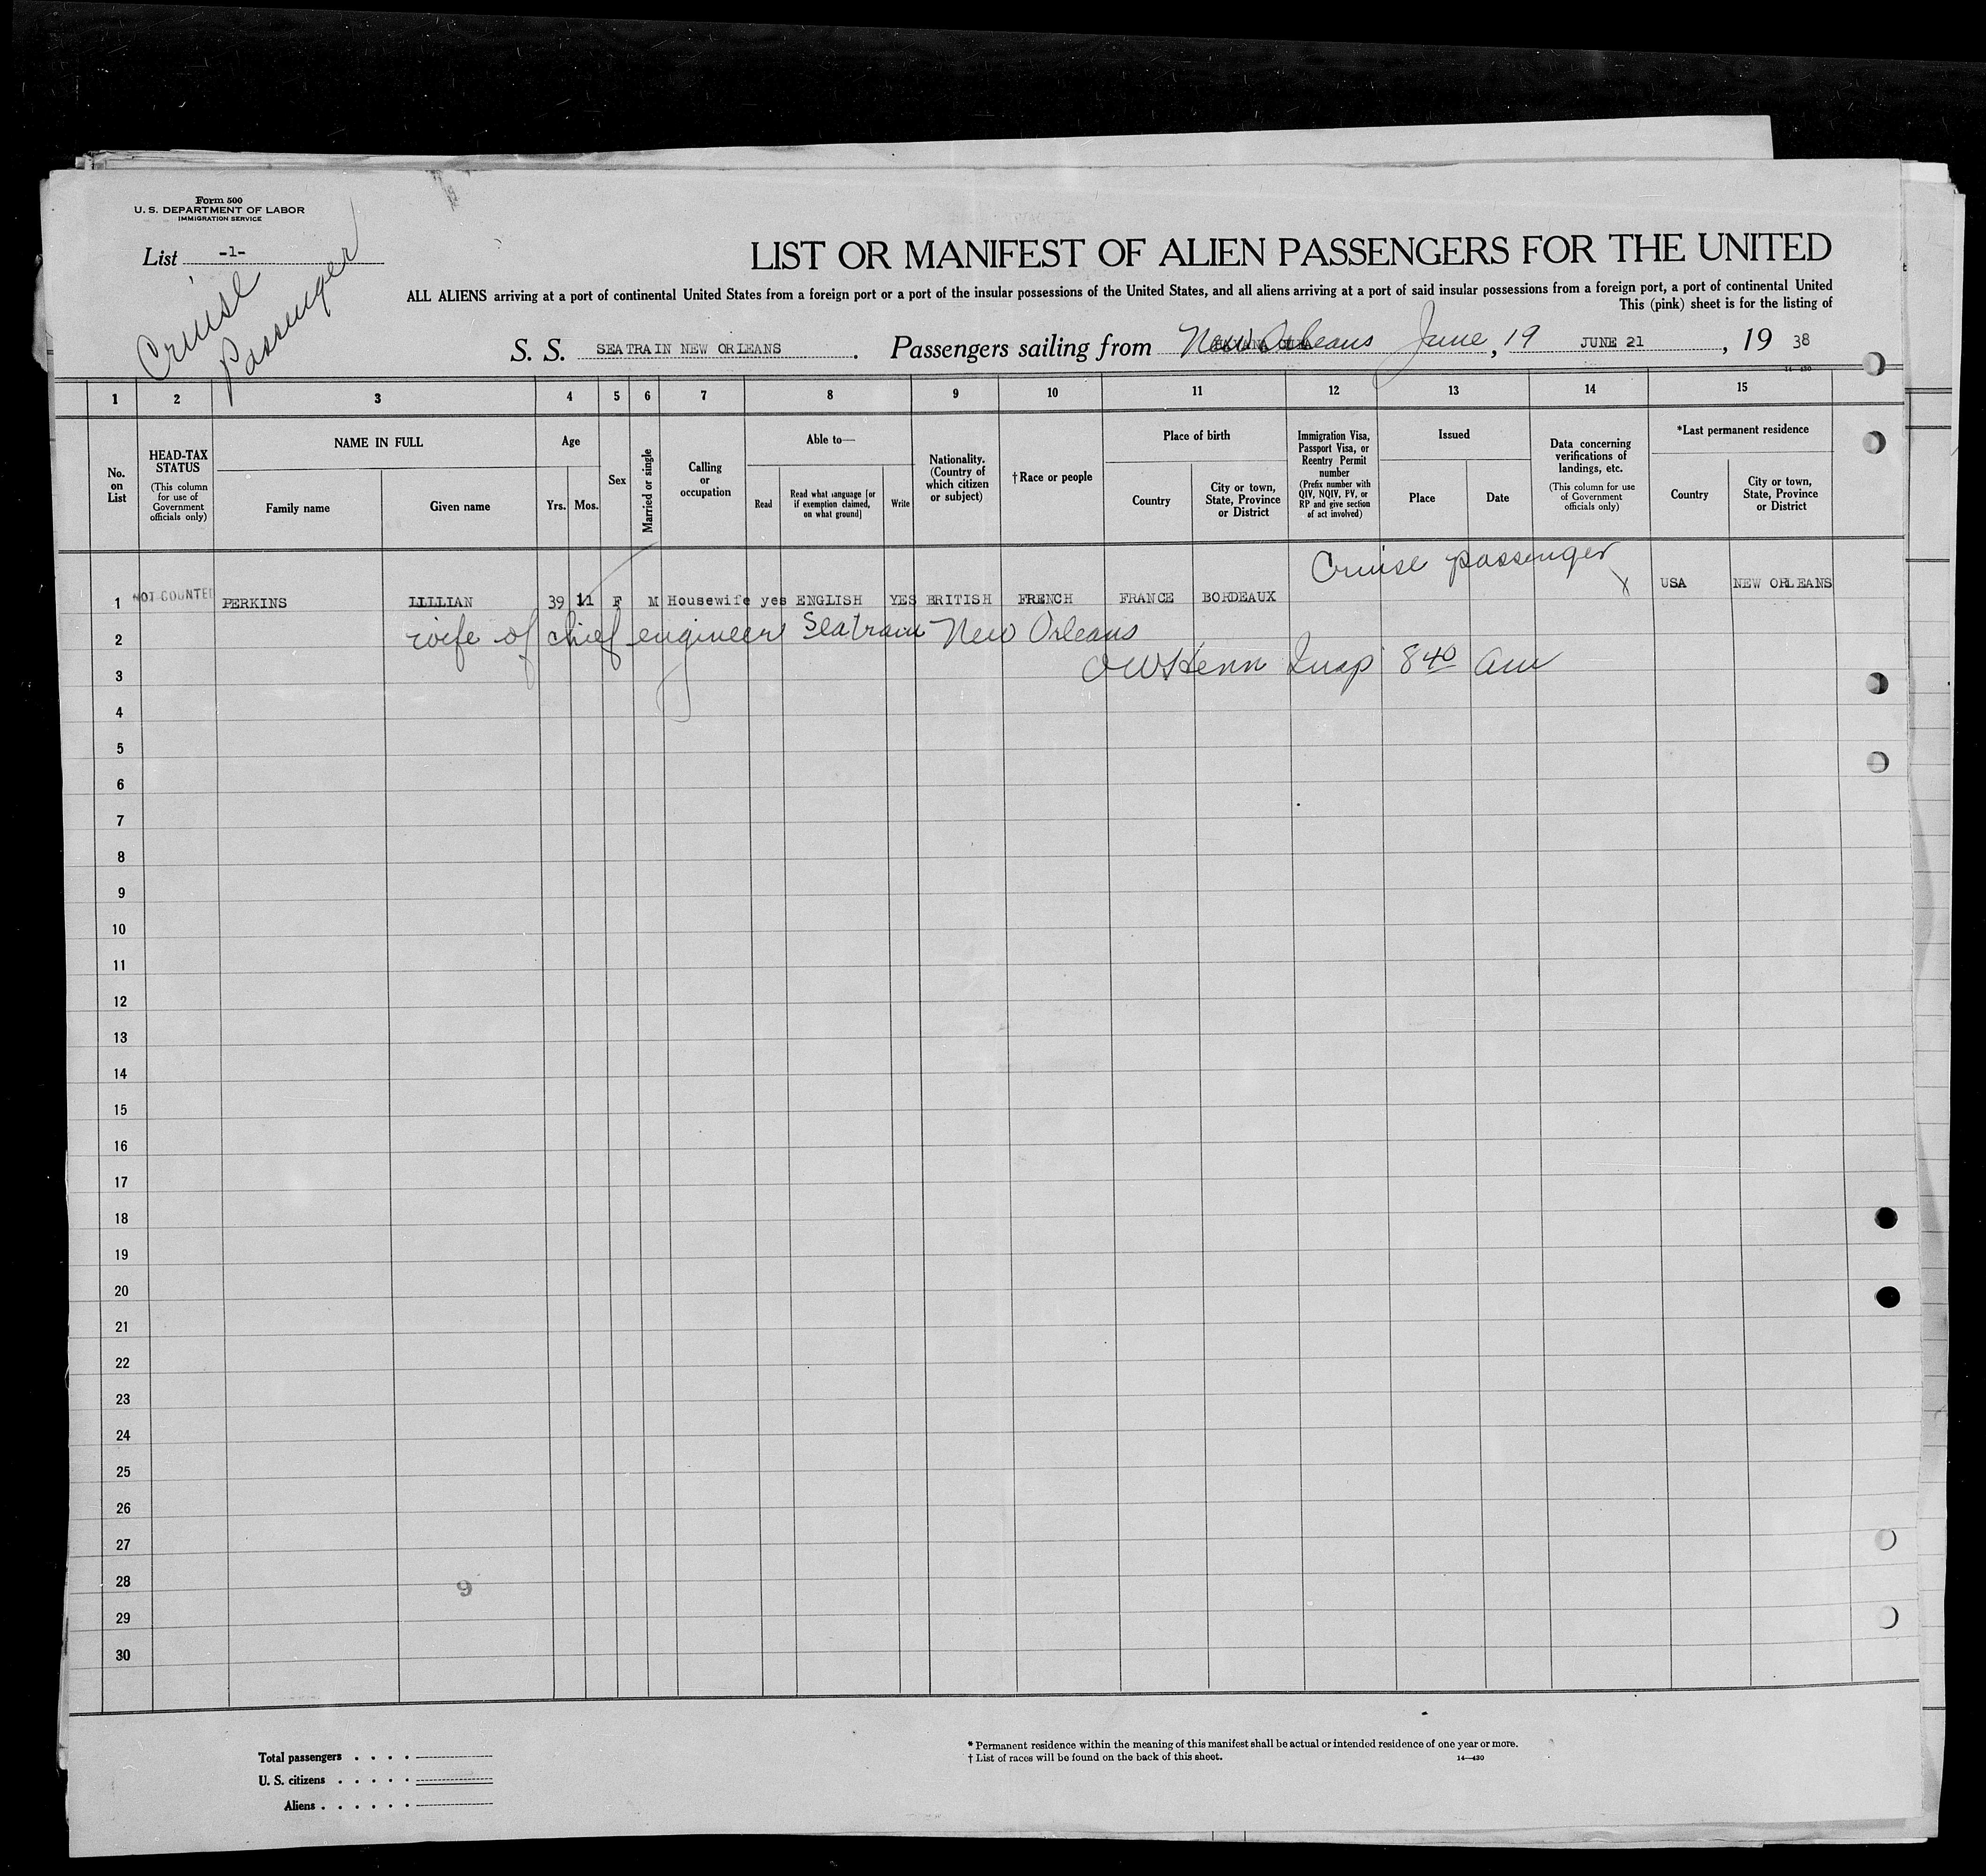 Form 500
U. S. DEPARTMENT OF LABOR
IMMIGRATION SERVICE
List -1-
Cruise
Passenger
LIST OR MANIFEST OF ALIEN PASSENGERS FOR THE UNITED
ALL ALIENS arriving at a port of continental United States from a foreign port or a port of the insular possessions of the United States, and all aliens arriving at a port of said insular possessions from a foreign port, a port of continental United
This (pink) sheet is for the listing of
S. S. SEATRAIN NEW ORLEANS. Passengers sailing from New Orleans June, 19 JUNE 21, 19 38
14—430
1 2 3 4 5 6 7 8 9 10 11 12 13 14 15
No. on List
HEAD-TAX STATUS (This column for use of Government officials only)
NAME IN FULL
Family name Given name
Age
Yrs. Mos.
Sex
Married or single
Calling or occupation
Able to—
Read Read what language [or if exemption claimed, on what ground] Write
Nationality. (Country of which citizen or subject)
†Race or people
Place of birth
Country City or town, State, Province or District
Immigration Visa, Passport Visa, or Reentry Permit number (Prefix number with QIV, NQIV, PV, or RP and give section of act involved)
Issued
Place Date
Data concerning verifications of landings, etc. (This column for use of Government officials only)
*Last permanent residence
Country City or town, State, Province or District
Cruise passenger X
1 NOT COUNTED PERKINS LILLIAN 39 11 F M Housewife yes ENGLISH YES BRITISH FRENCH FRANCE BORDEAUX USA NEW ORLEANS
2 wife of chief engineer Seatrain New Orleans
3 OW Henn Insp 8 40 am
4
5
6
7
8
9
10
11
12
13
14
15
16
17
18
19
20
21
22
23
24
25
26
27
28 9
29
30
Total passengers . . . .
U. S. citizens . . . . .
Aliens . . . . . .
* Permanent residence within the meaning of this manifest shall be actual or intended residence of one year or more.
† List of races will be found on the back of this sheet. 14—430